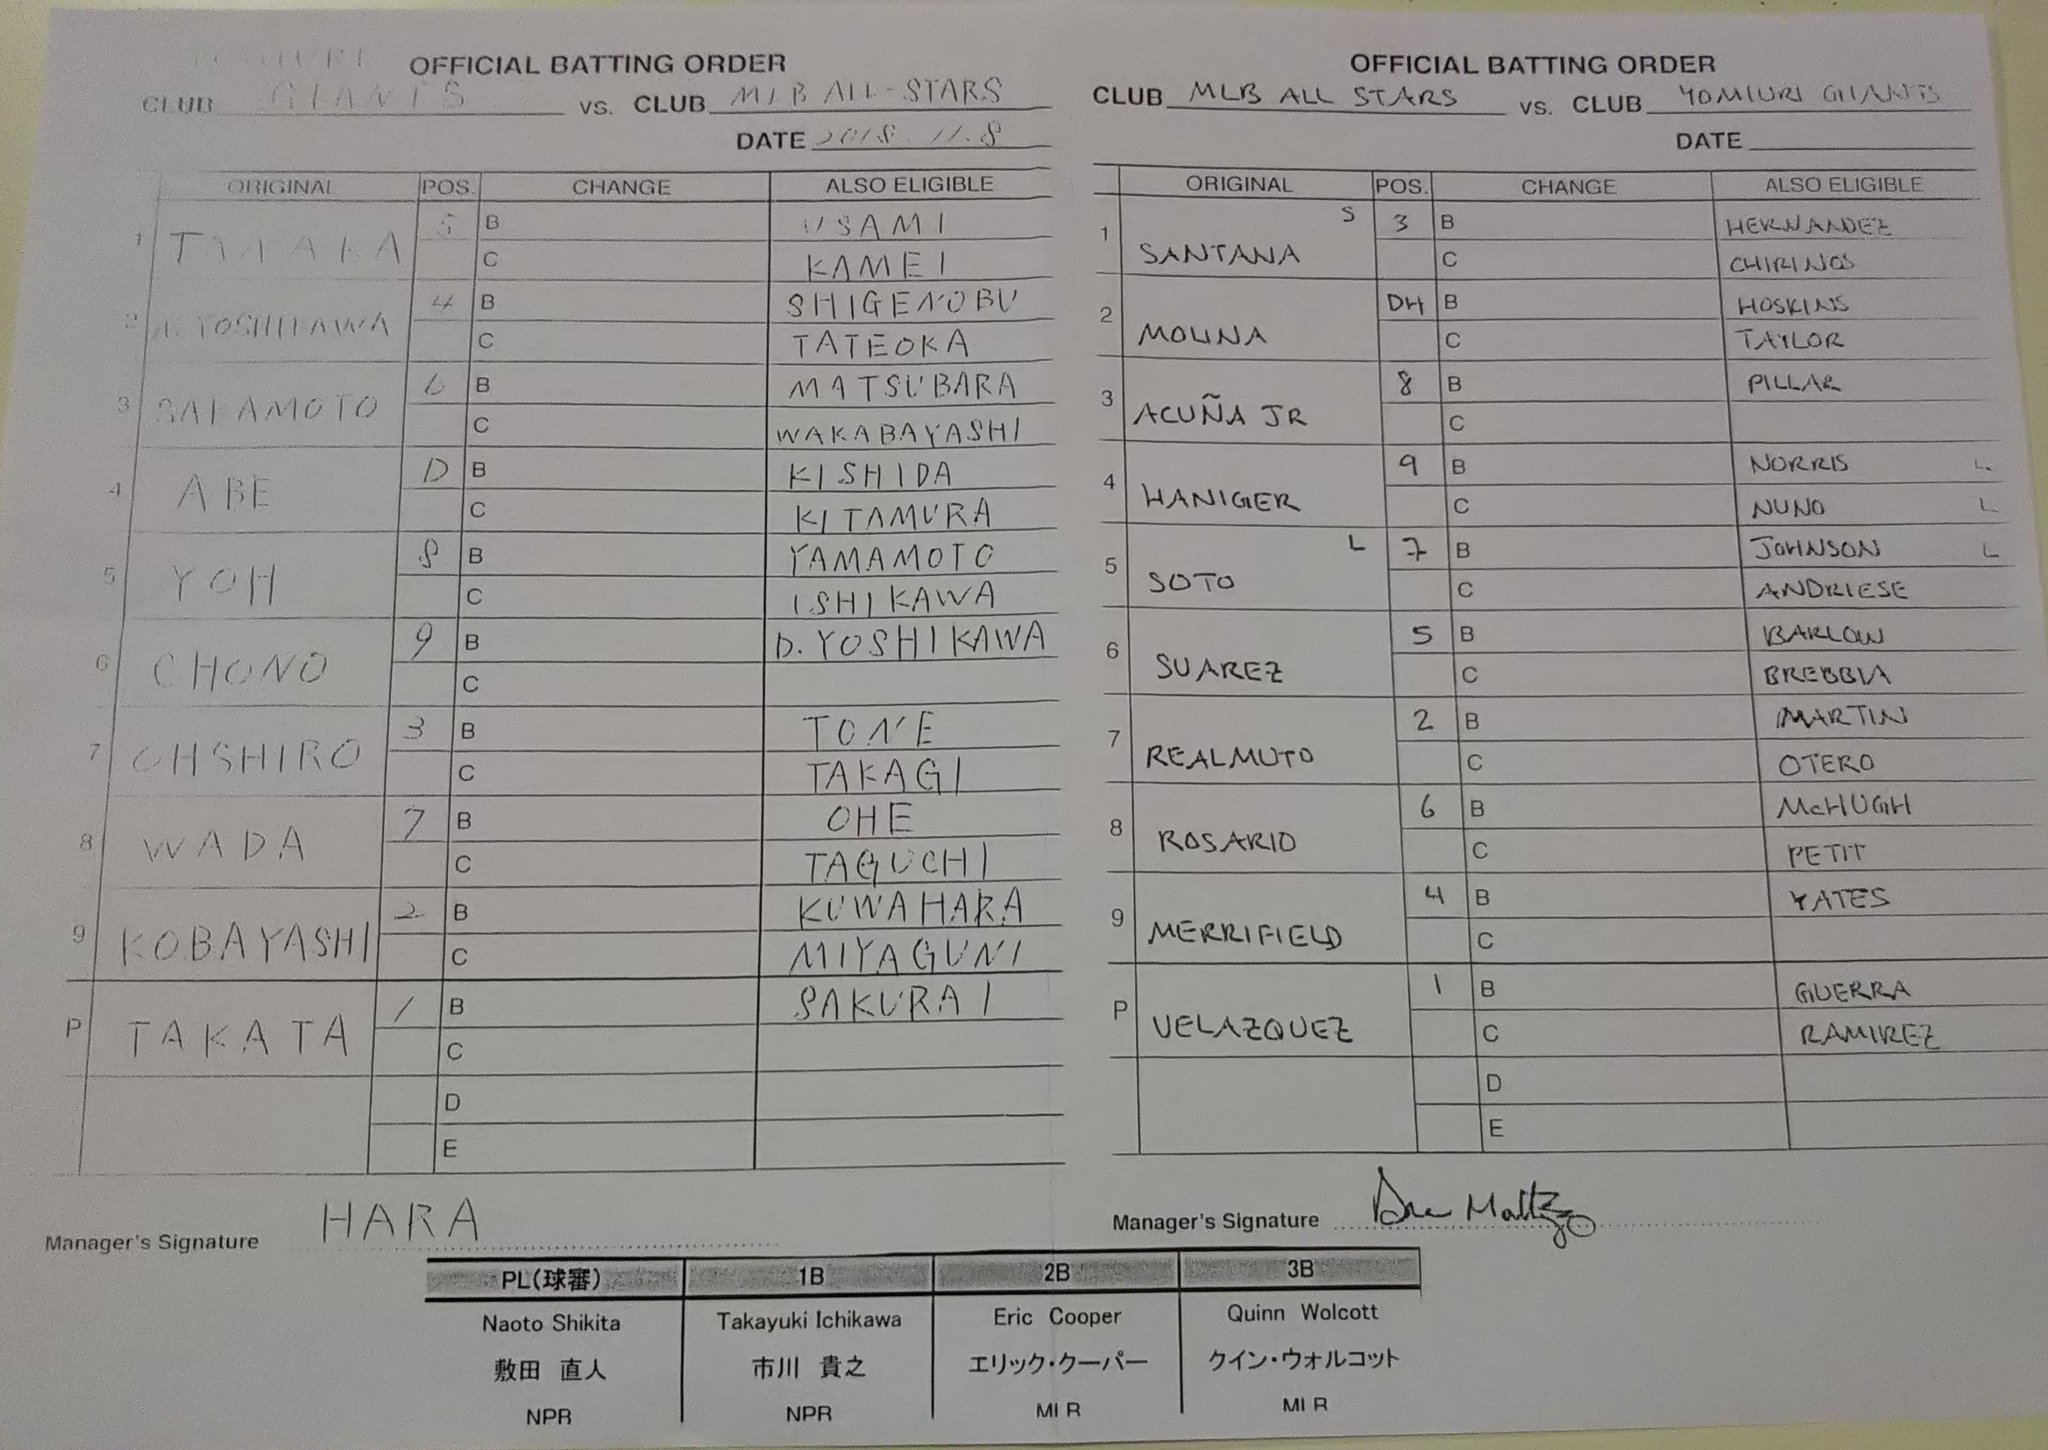 OFFICIAL BATTING ORDER
CLUB GIANTS vs. CLUB MLB ALL-STARS
DATE 2018.11.8
ORIGINAL POS. CHANGE ALSO ELIGIBLE
1 TANAKA 5 B USAMI
C KAMEI
2 N.YOSHIKAWA 4 B SHIGENOBU
C TATEOKA
3 SAKAMOTO 6 B MATSUBARA
C WAKABAYASHI
4 ABE D B KISHIDA
C KITAMURA
5 YOH 8 B YAMAMOTO
C ISHIKAWA
6 CHONO 9 B D.YOSHIKAWA
C
7 OHSHIRO 3 B TONE
C TAKAGI
8 WADA 7 B OHE
C TAGUCHI
9 KOBAYASHI 2 B KUWAHARA
C MIYAGUNI
P TAKATA 1 B SAKURAI
C
D
E
Manager's Signature HARA
OFFICIAL BATTING ORDER
CLUB MLB ALL STARS vs. CLUB YOMIURI GIANTS
DATE
ORIGINAL POS. CHANGE ALSO ELIGIBLE
1 SANTANA S 3 B HERNANDEZ
C CHIRINOS
2 MOLINA DH B HOSKINS
C TAYLOR
3 ACUÑA JR 8 B PILLAR
C
4 HANIGER 9 B NORRIS L.
C NUNO L
5 SOTO L 7 B JOHNSON L
C ANDRIESE
6 SUAREZ 5 B BARLOW
C BREBBIA
7 REALMUTO 2 B MARTIN
C OTERO
8 ROSARIO 6 B McHUGH
C PETIT
9 MERRIFIELD 4 B YATES
C
P VELAZQUEZ 1 B GUERRA
C RAMIREZ
D
E
Manager's Signature
PL(球審) 1B 2B 3B
Naoto Shikita Takayuki Ichikawa Eric Cooper Quinn Wolcott
敷田 直人 市川 貴之 エリック・クーパー クイン・ウォルコット
NPR NPR MLR MLR